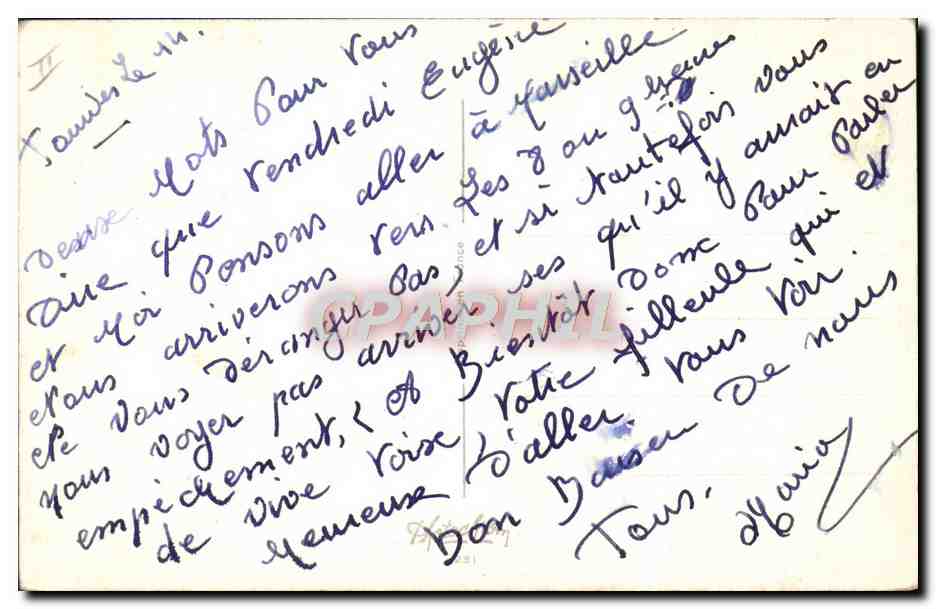 II
Tounies Le 14.
Deuxe Mots Pour vous
Dire que vendredi Eugénie
et Moi Pensons aller à Marseille
Nous arriverons vers Les 8 ou 9 heures
Ne vous Déranger Pas, et si toutefois vous
nous voyer pas arriver ses qu'il y aurait eu
empéchement, et Bientôt Donc Pour Parler
de vive voise votre filleule qui et
Heureuse D'aller vous voir.
Bon Baiser De nous
Tous.
Maria
CPAPHIL
291